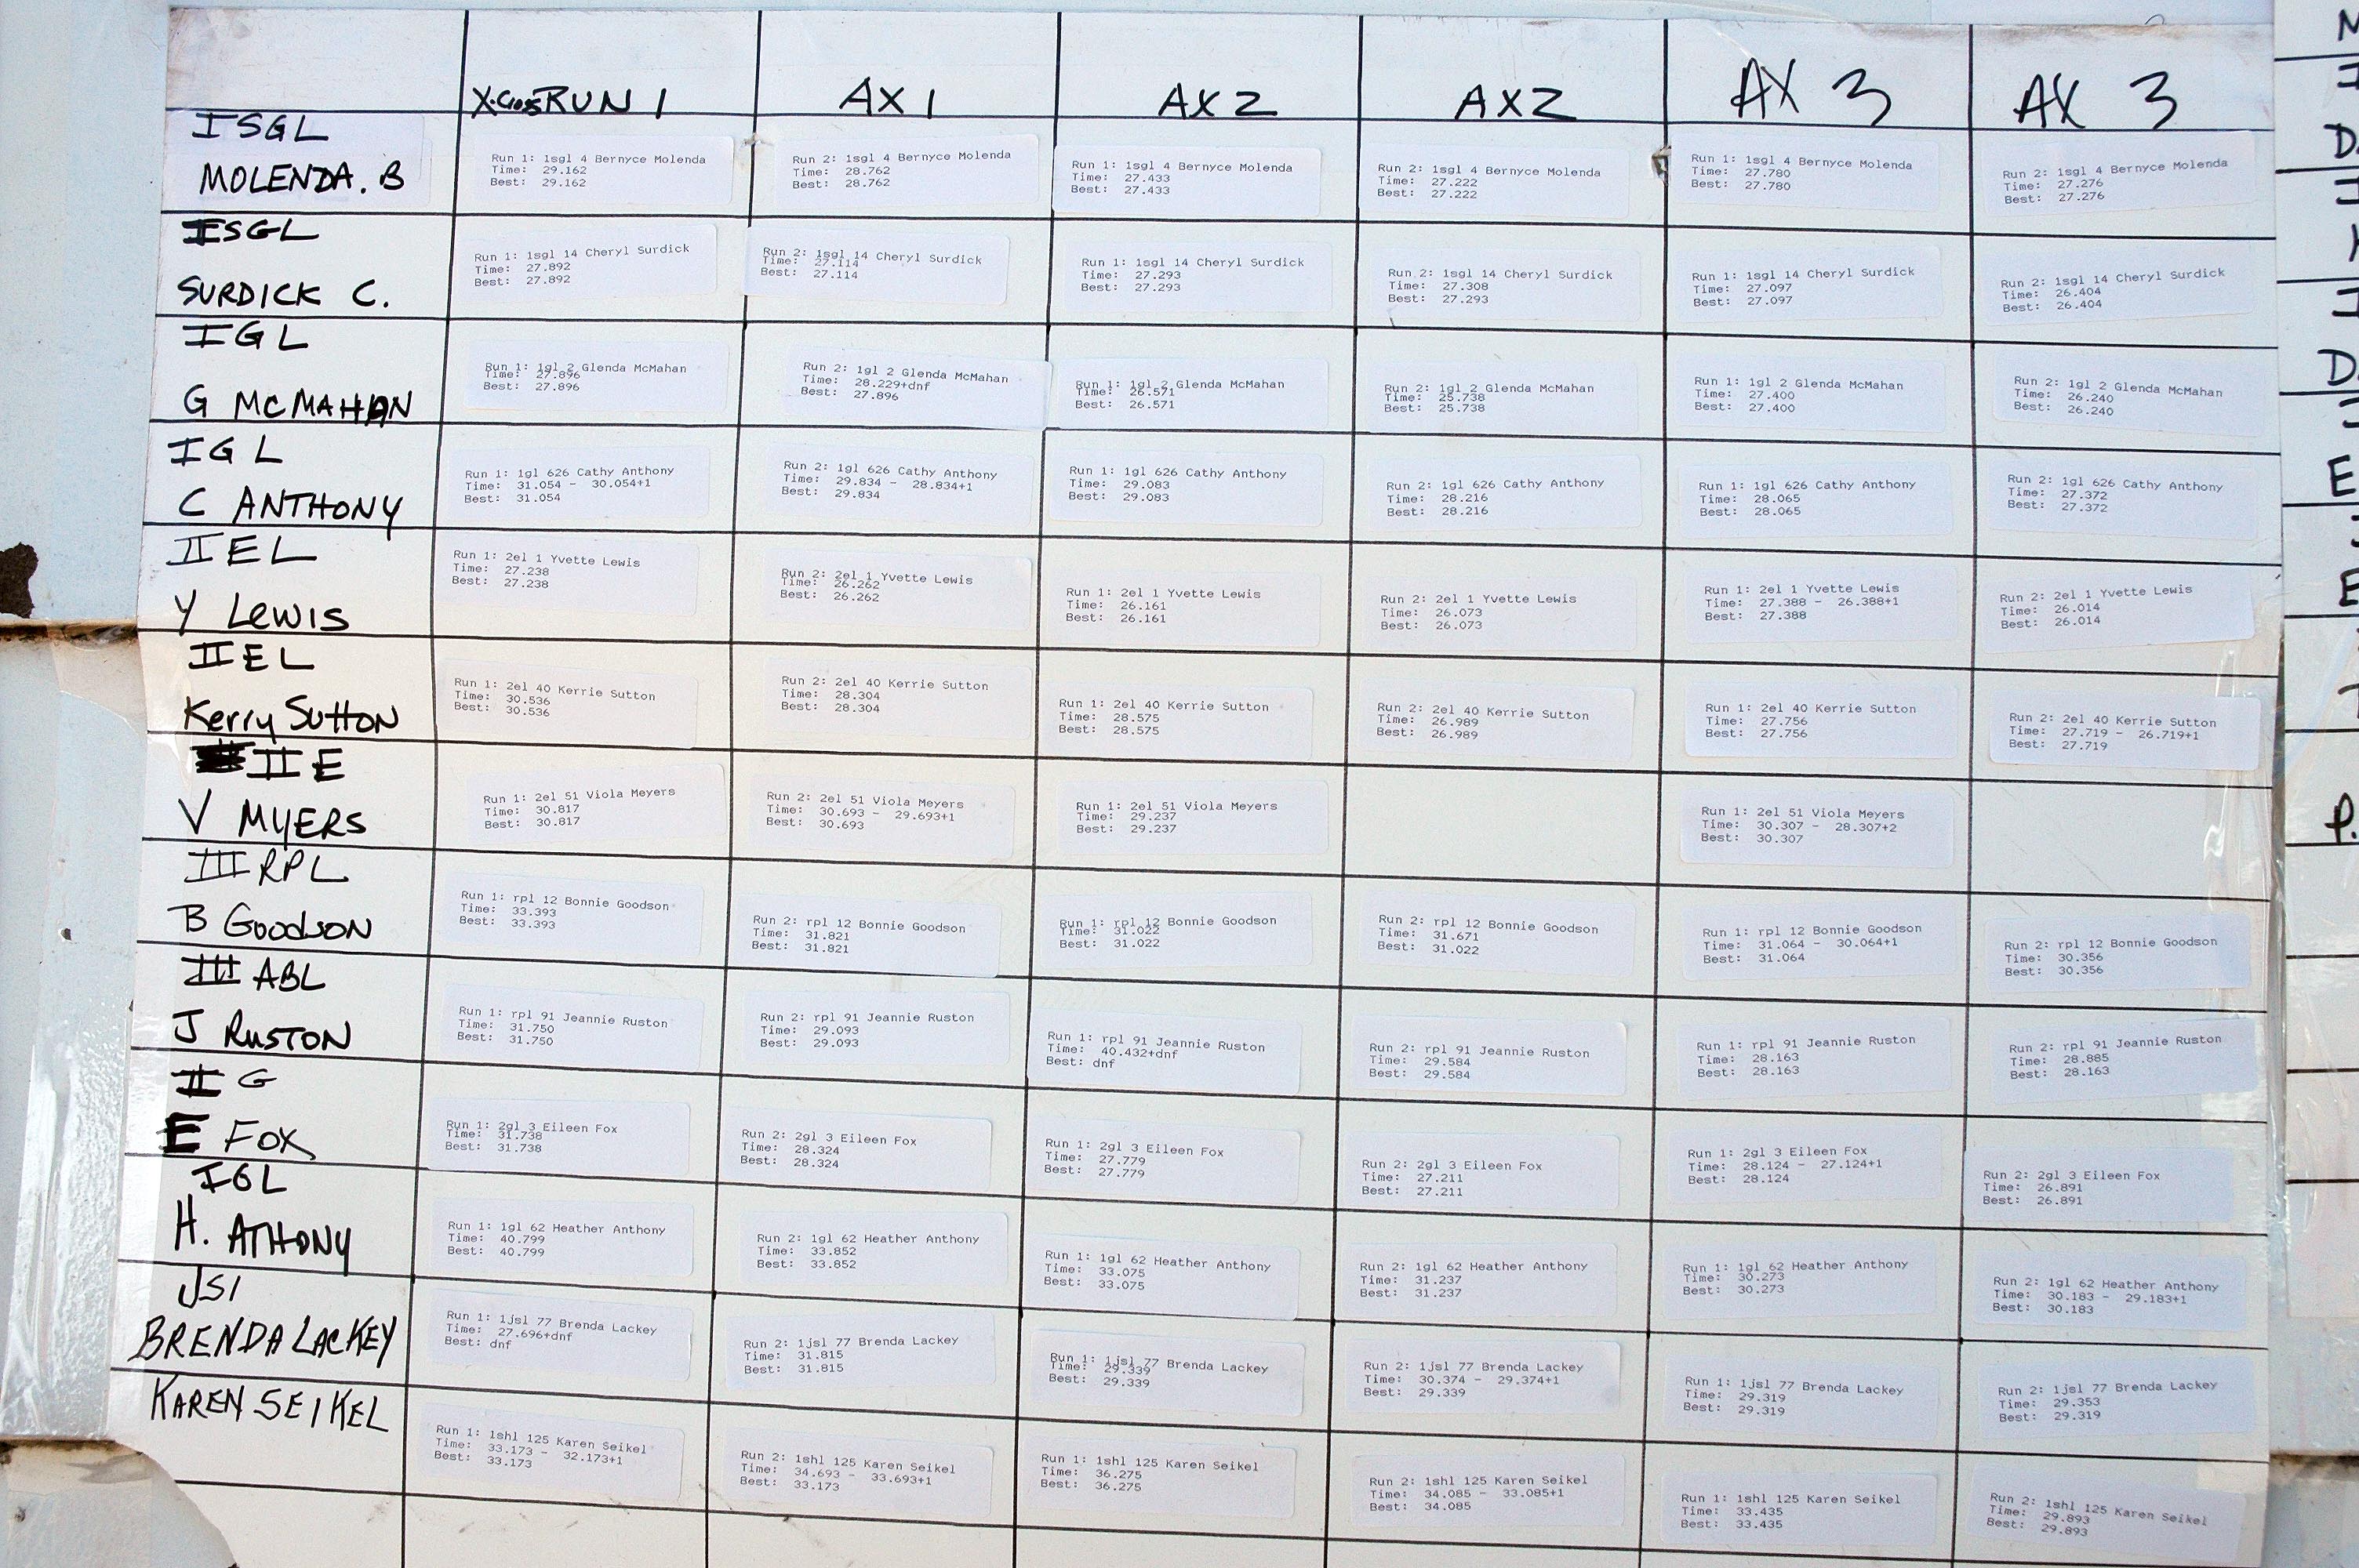 X-Cross RUN 1 AX 1 AX 2 AX 2 AX 3 AX 3
ISGL
MOLENDA. B
Run 1: 1sgl 4 Bernyce Molenda
Time: 29.162
Best: 29.162
Run 2: 1sgl 4 Bernyce Molenda
Time: 28.762
Best: 28.762
Run 1: 1sgl 4 Bernyce Molenda
Time: 27.433
Best: 27.433
Run 2: 1sgl 4 Bernyce Molenda
Time: 27.222
Best: 27.222
Run 1: 1sgl 4 Bernyce Molenda
Time: 27.780
Best: 27.780
Run 2: 1sgl 4 Bernyce Molenda
Time: 27.276
Best: 27.276
ISGL
SURDICK C.
Run 1: 1sgl 14 Cheryl Surdick
Time: 27.892
Best: 27.892
Run 2: 1sgl 14 Cheryl Surdick
Time: 27.114
Best: 27.114
Run 1: 1sgl 14 Cheryl Surdick
Time: 27.293
Best: 27.293
Run 2: 1sgl 14 Cheryl Surdick
Time: 27.308
Best: 27.293
Run 1: 1sgl 14 Cheryl Surdick
Time: 27.097
Best: 27.097
Run 2: 1sgl 14 Cheryl Surdick
Time: 26.404
Best: 26.404
IGL
G MCMAHAN
Run 1: 1gl 2 Glenda McMahan
Time: 27.896
Best: 27.896
Run 2: 1gl 2 Glenda McMahan
Time: 28.229+dnf
Best: 27.896
Run 1: 1gl 2 Glenda McMahan
Time: 26.571
Best: 26.571
Run 2: 1gl 2 Glenda McMahan
Time: 25.738
Best: 25.738
Run 1: 1gl 2 Glenda McMahan
Time: 27.400
Best: 27.400
Run 2: 1gl 2 Glenda McMahan
Time: 26.240
Best: 26.240
IGL
C ANTHONY
Run 1: 1gl 626 Cathy Anthony
Time: 31.054 - 30.054+1
Best: 31.054
Run 2: 1gl 626 Cathy Anthony
Time: 29.834 - 28.834+1
Best: 29.834
Run 1: 1gl 626 Cathy Anthony
Time: 29.083
Best: 29.083
Run 2: 1gl 626 Cathy Anthony
Time: 28.216
Best: 28.216
Run 1: 1gl 626 Cathy Anthony
Time: 28.065
Best: 28.065
Run 2: 1gl 626 Cathy Anthony
Time: 27.372
Best: 27.372
II EL
Y LEWIS
Run 1: 2el 1 Yvette Lewis
Time: 27.238
Best: 27.238
Run 2: 2el 1 Yvette Lewis
Time: 26.262
Best: 26.262
Run 1: 2el 1 Yvette Lewis
Time: 26.161
Best: 26.161
Run 2: 2el 1 Yvette Lewis
Time: 26.073
Best: 26.073
Run 1: 2el 1 Yvette Lewis
Time: 27.388 - 26.388+1
Best: 27.388
Run 2: 2el 1 Yvette Lewis
Time: 26.014
Best: 26.014
II EL
Kerry Sutton
Run 1: 2el 40 Kerrie Sutton
Time: 30.536
Best: 30.536
Run 2: 2el 40 Kerrie Sutton
Time: 28.304
Best: 28.304
Run 1: 2el 40 Kerrie Sutton
Time: 28.575
Best: 28.575
Run 2: 2el 40 Kerrie Sutton
Time: 26.989
Best: 26.989
Run 1: 2el 40 Kerrie Sutton
Time: 27.756
Best: 27.756
Run 2: 2el 40 Kerrie Sutton
Time: 27.719 - 26.719+1
Best: 27.719
II E
V MYERS
Run 1: 2el 51 Viola Meyers
Time: 30.817
Best: 30.817
Run 2: 2el 51 Viola Meyers
Time: 30.693 - 29.693+1
Best: 30.693
Run 1: 2el 51 Viola Meyers
Time: 29.237
Best: 29.237
Run 1: 2el 51 Viola Meyers
Time: 30.307 - 28.307+2
Best: 30.307
III RPL
B GOODSON
Run 1: rpl 12 Bonnie Goodson
Time: 33.393
Best: 33.393
Run 2: rpl 12 Bonnie Goodson
Time: 31.821
Best: 31.821
Run 1: rpl 12 Bonnie Goodson
Time: 31.022
Best: 31.022
Run 2: rpl 12 Bonnie Goodson
Time: 31.671
Best: 31.022
Run 1: rpl 12 Bonnie Goodson
Time: 31.064 - 30.064+1
Best: 31.064
Run 2: rpl 12 Bonnie Goodson
Time: 30.356
Best: 30.356
III ABL
J RUSTON
Run 1: rpl 91 Jeannie Ruston
Time: 31.750
Best: 31.750
Run 2: rpl 91 Jeannie Ruston
Time: 29.093
Best: 29.093
Run 1: rpl 91 Jeannie Ruston
Time: 40.432+dnf
Best: dnf
Run 2: rpl 91 Jeannie Ruston
Time: 29.584
Best: 29.584
Run 1: rpl 91 Jeannie Ruston
Time: 28.163
Best: 28.163
Run 2: rpl 91 Jeannie Ruston
Time: 28.885
Best: 28.163
II G
E FOX
Run 1: 2gl 3 Eileen Fox
Time: 31.738
Best: 31.738
Run 2: 2gl 3 Eileen Fox
Time: 28.324
Best: 28.324
Run 1: 2gl 3 Eileen Fox
Time: 27.779
Best: 27.779
Run 2: 2gl 3 Eileen Fox
Time: 27.211
Best: 27.211
Run 1: 2gl 3 Eileen Fox
Time: 28.124 - 27.124+1
Best: 28.124
Run 2: 2gl 3 Eileen Fox
Time: 26.891
Best: 26.891
IGL
H. ATHONY
Run 1: 1gl 62 Heather Anthony
Time: 40.799
Best: 40.799
Run 2: 1gl 62 Heather Anthony
Time: 33.852
Best: 33.852
Run 1: 1gl 62 Heather Anthony
Time: 33.075
Best: 33.075
Run 2: 1gl 62 Heather Anthony
Time: 31.237
Best: 31.237
Run 1: 1gl 62 Heather Anthony
Time: 30.273
Best: 30.273
Run 2: 1gl 62 Heather Anthony
Time: 30.183 - 29.183+1
Best: 30.183
JSI
BRENDA LACKEY
Run 1: 1jsl 77 Brenda Lackey
Time: 27.696+dnf
Best: dnf
Run 2: 1jsl 77 Brenda Lackey
Time: 31.815
Best: 31.815
Run 1: 1jsl 77 Brenda Lackey
Time: 29.339
Best: 29.339
Run 2: 1jsl 77 Brenda Lackey
Time: 30.374 - 29.374+1
Best: 29.339
Run 1: 1jsl 77 Brenda Lackey
Time: 29.319
Best: 29.319
Run 2: 1jsl 77 Brenda Lackey
Time: 29.353
Best: 29.319
KAREN SEIKEL
Run 1: 1shl 125 Karen Seikel
Time: 33.173 - 32.173+1
Best: 33.173
Run 2: 1shl 125 Karen Seikel
Time: 34.693 - 33.693+1
Best: 33.173
Run 1: 1shl 125 Karen Seikel
Time: 36.275
Best: 36.275
Run 2: 1shl 125 Karen Seikel
Time: 34.085 - 33.085+1
Best: 34.085
Run 1: 1shl 125 Karen Seikel
Time: 33.435
Best: 33.435
Run 2: 1shl 125 Karen Seikel
Time: 29.893
Best: 29.893